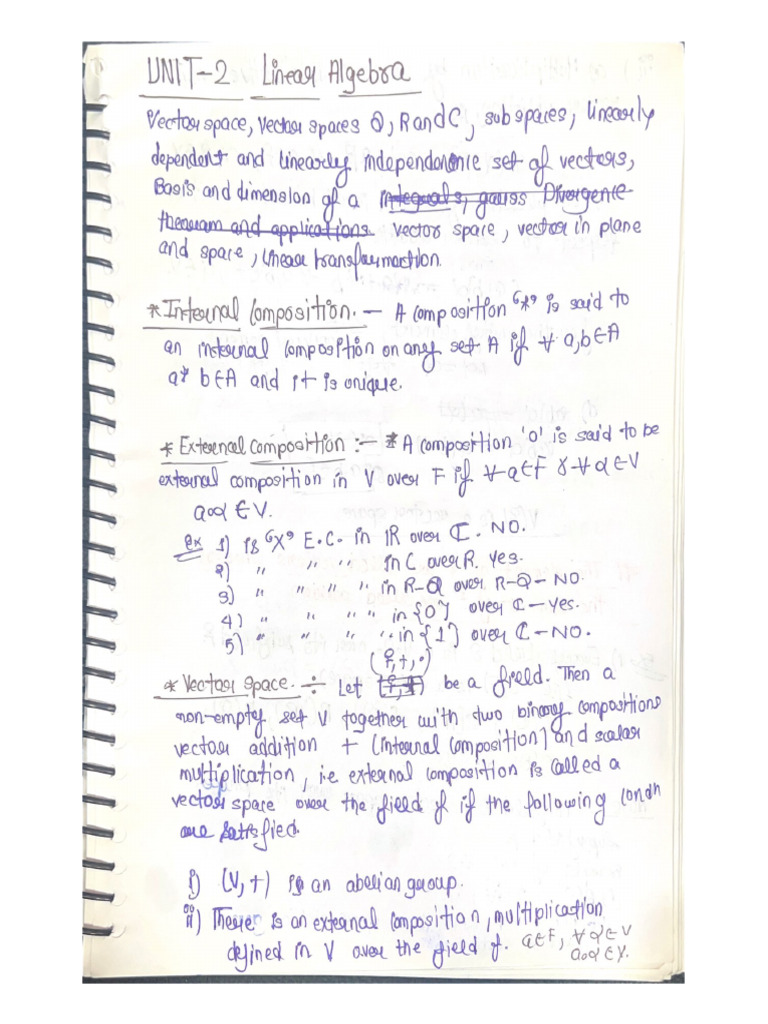 UNIT-2 Linear Algebra
Vector space, Vector spaces Q, R and C, sub spaces, linearly
dependent and linearly independence set of vectors,
Basis and dimension of a integrals, gauss Divergence
thearam and applications vector space, vector in plane
and space, linear transformaction.
* Internal Composition. — A composition "*" is said to
an internal composition on any set A if ∀ a,b∈A
a*b∈A and it is unique.
* External composition :— * A composition 'o' is said to be
external composition in V over F if ∀ a∈F & ∀ α∈V
aoα ∈ V.
Ex 1) is "X" E.C. in IR over ℂ. NO.
2) " " " " in C over R. Yes.
3) " " " " in R-Q over R-Q - NO.
4) " " " " in {0} over ℂ - Yes.
5) " " " " in {1} over ℂ - NO.
(f,+,·)
* Vector space. ÷ Let (f,*) be a field. Then a
non-empty set V together with two binary compositions
vector addition + (internal composition) and scalar
multiplication, i.e external composition is called a
vector space over the field f if the following condn
are satisfied.
i) (V,+) is an abelian group.
ii) There is an external composition, multiplication
defined in V over the field f. a∈F, ∀ α∈V
aoα ∈ V.